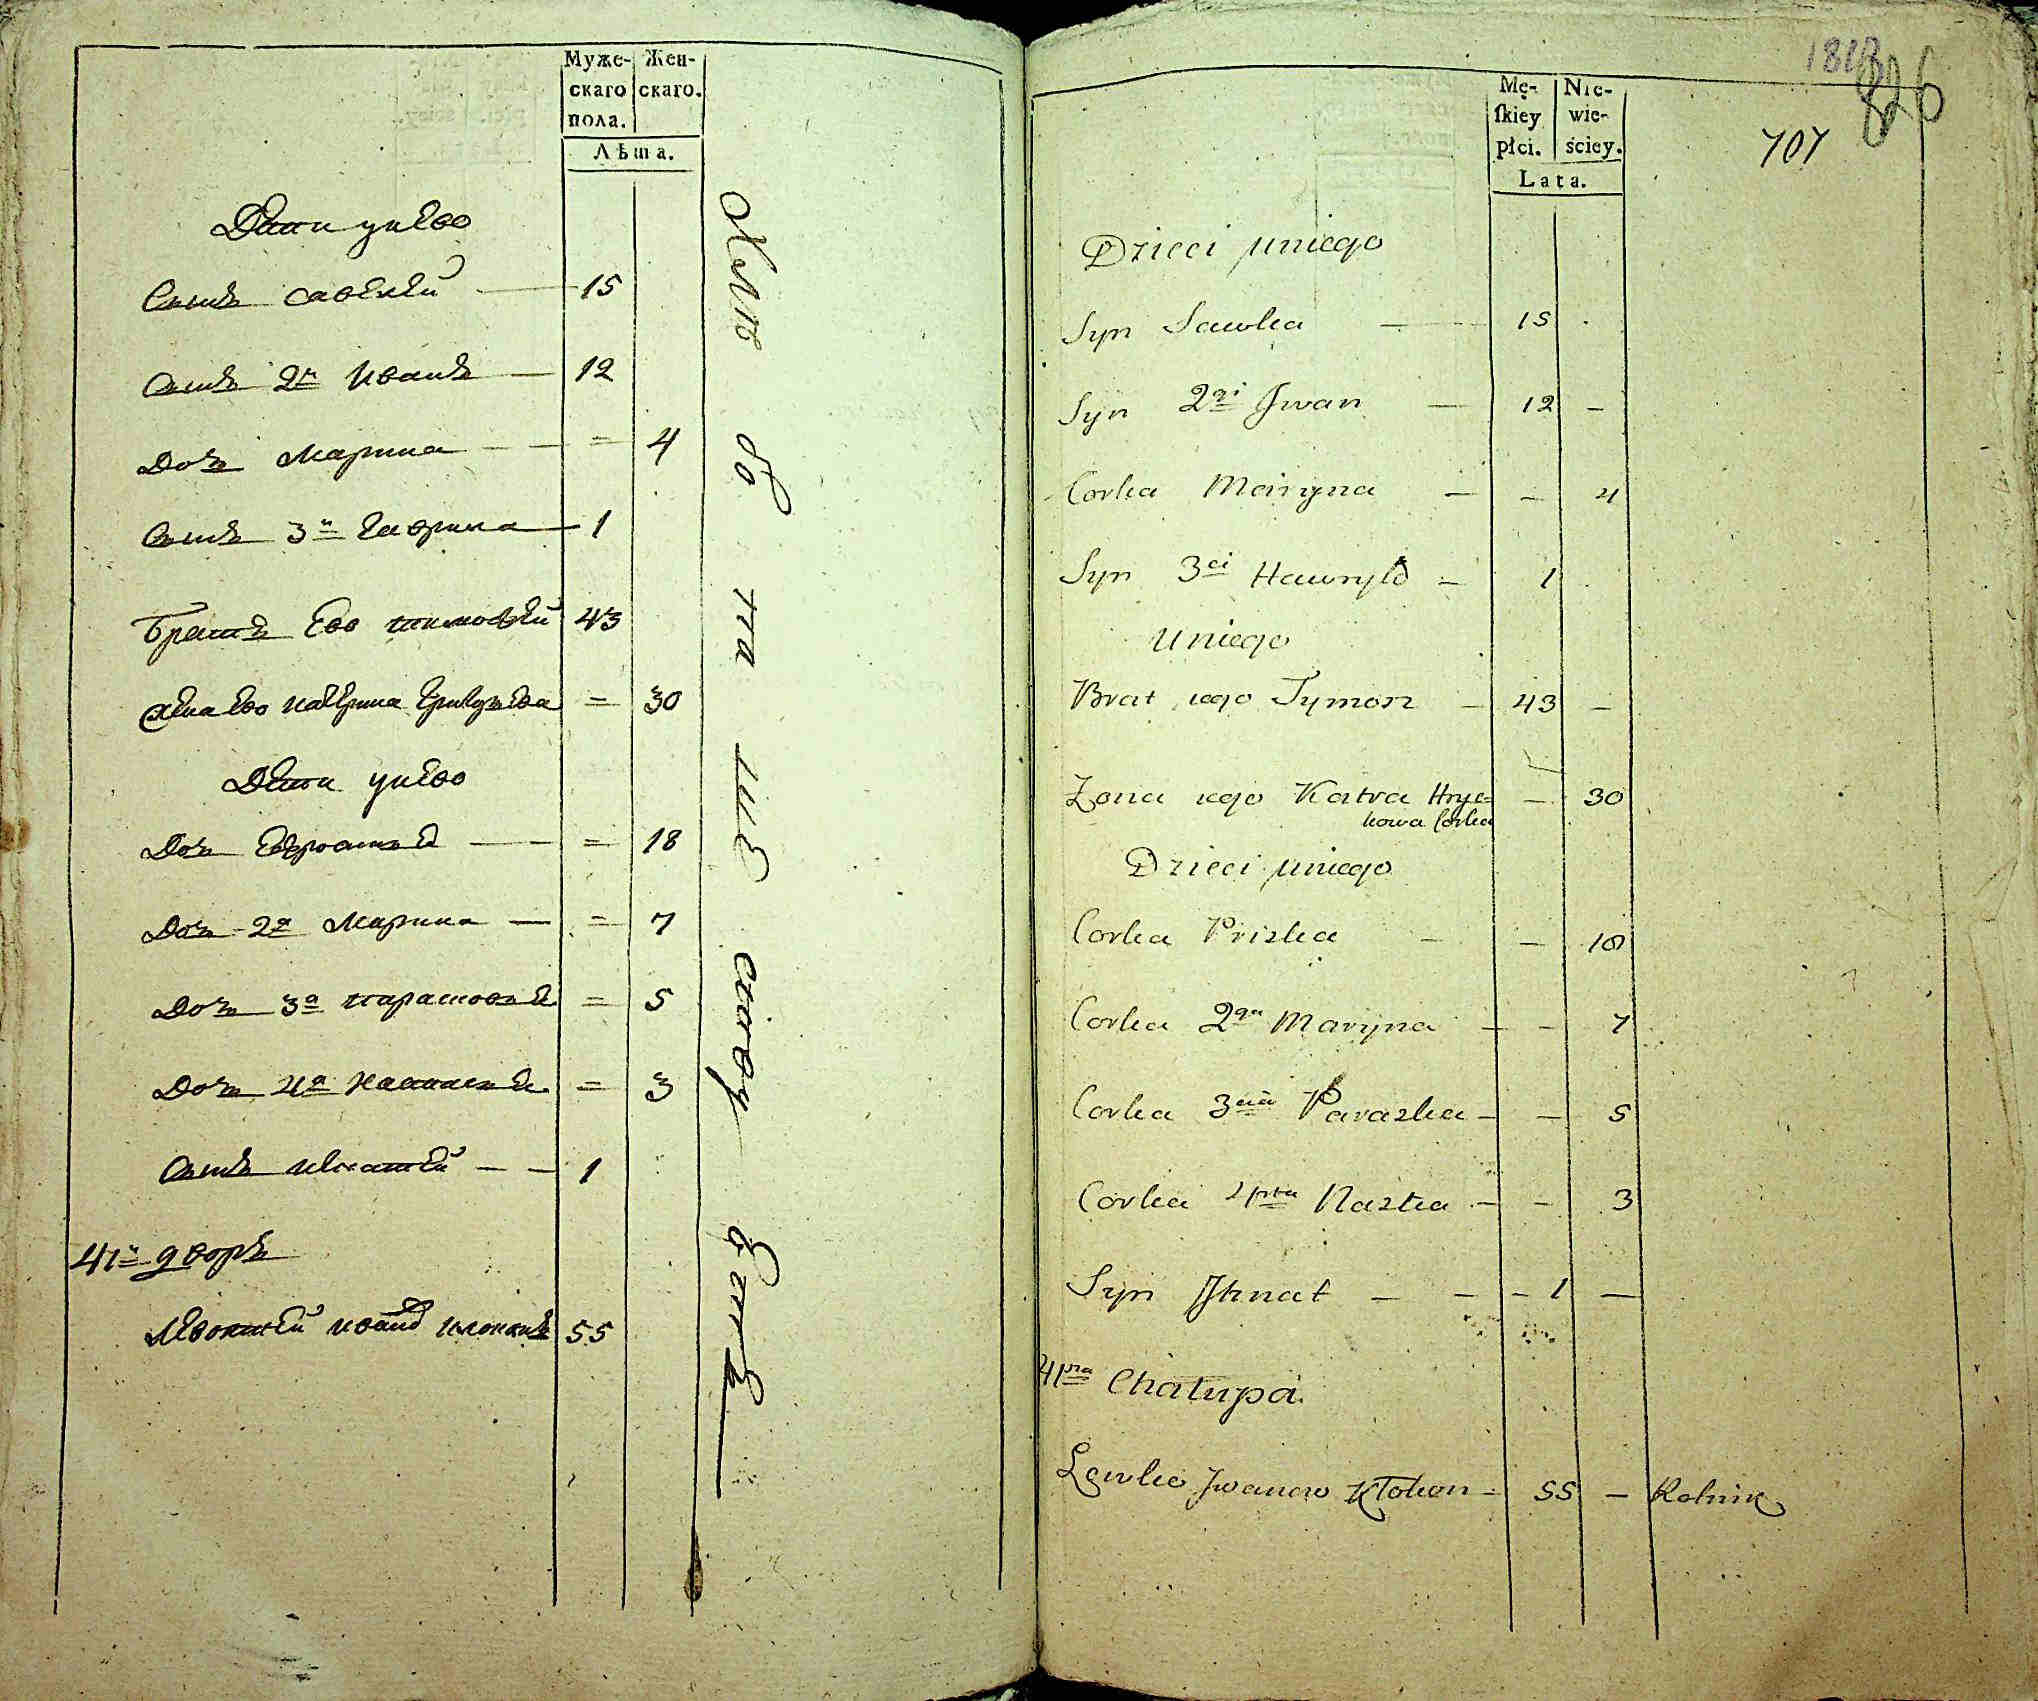 Муже-
скаго
пола.
Жен-
скаго.
Лѣта.
Дети у нево
Сынъ савелей 15
Сынъ 2й Иванъ 12
Дочь Марина = 4
Сынъ 3й Гаврила 1
Братъ Ево тимофей 43
жена Ево катерина = 30
Дети у нево
Дочь = 18
Дочь 2я Марина = 7
Дочь 3я парасковья = 5
Дочь 4я настасья = 3
Сынъ игнатей 1
41й дворъ
Иванов 55
Mę-
ſkiey
płci.
Nie-
wie-
ściey.
Lata.
826
707
Dzieci uniego
Syn Sawka 15
Syn 2gi Jwan 12
Corka Maryna 4
Syn 3ci Hawryło 1
Uniego
Brat iego Tymosz 43
Żona iego Katra Hryc=
kowa Corka 30
Dzieci uniego
Corka Priska 18
Corka 2ga Maryna 7
Corka 3cia Paraska 5
Corka 4rta Nastia 3
Syn Jhnat 1
41sza Chałupa
Lewko Jwanow Kłokon 55 Rolnik